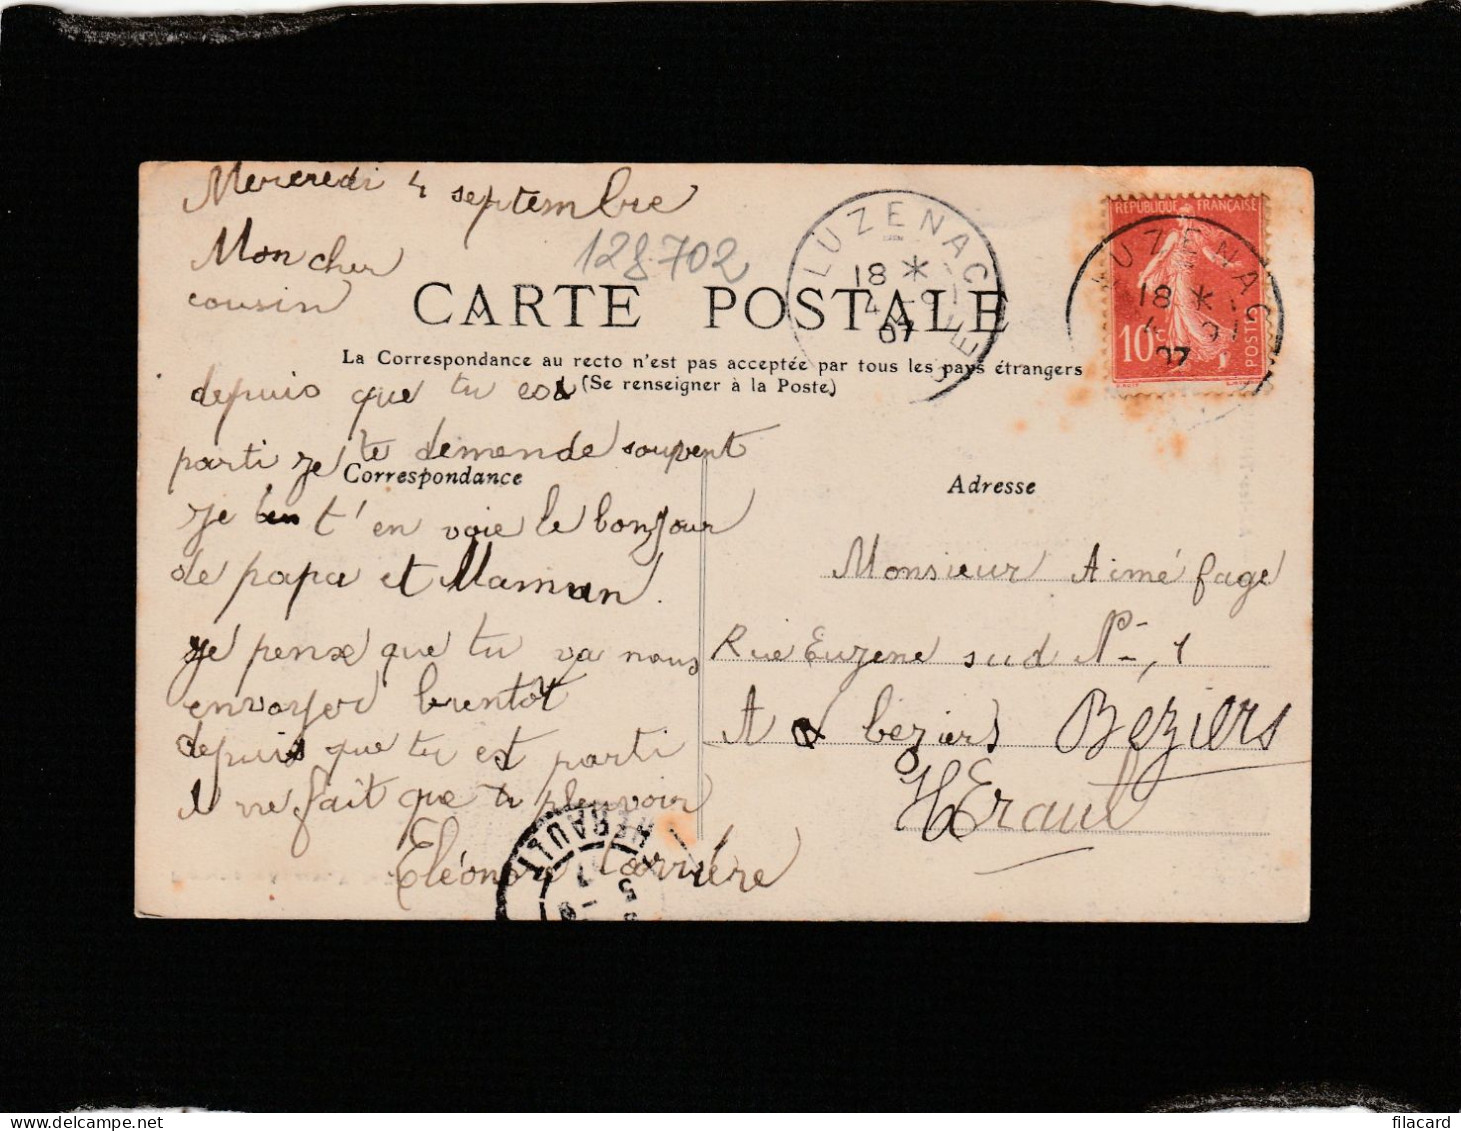 Mercredi 4 septembre
Mon cher
cousin
128702
CARTE POSTALE
La Correspondance au recto n'est pas acceptée par tous les pays étrangers
(Se renseigner à la Poste)
depuis que tu es
parti je te demende souvent
Correspondance
je t'en voie le bonjour
de papa et Maman.
je pense que tu va nous
envoyer bientot
depuis que tu est parti
il ne fait que pleuvoir
Eléonore Carrière
LUZENAC
18 *
4 - 9
07
RÉPUBLIQUE FRANÇAISE
10 c
POSTES
LUZENAC
18 *
4 - 9
07
Adresse
Monsieur Aimé fage
Rue Euzene sud N-, 1
A beziers Beziers
HEraul
HERAULT
5
filacard